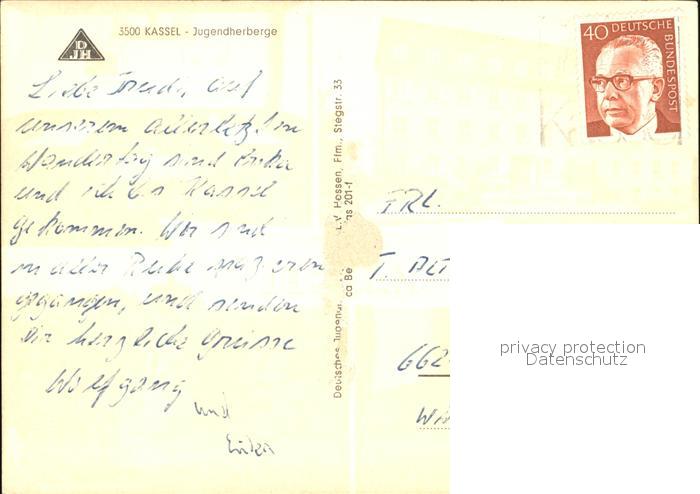 DJH
3500 KASSEL - Jugendherberge
Liebe Trudi, auf
unserem allerletzten
Wandertag sind Erika
und ich bis Kassel
gekommen. Wir sind
in aller Ruhe spazieren
gegangen, und senden
Dir herzliche Grüsse
Wolfgang
und
Erika
Deutsches Jugend
Hossen, Ffm., Stegstr. 33
201-f
ca Be
40 DEUTSCHE
BUNDESPOST
FRL.
T.
662
privacy protection
Datenschutz